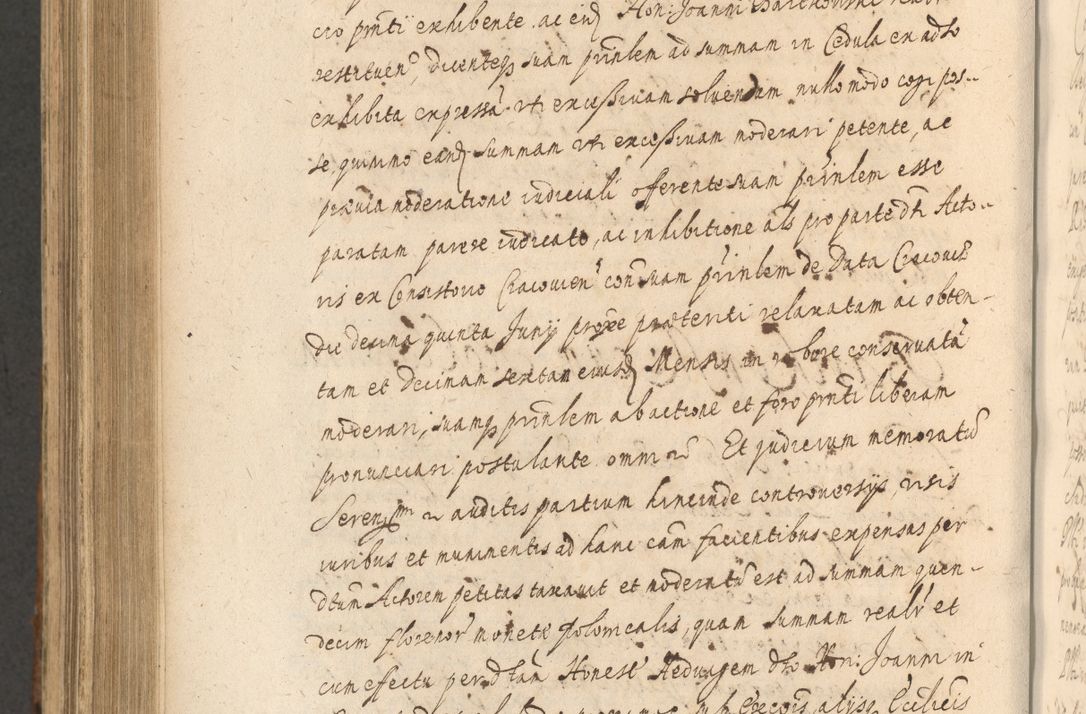 cio pntī exhibente ac eid Hon: Joanni
restituen, dicenteq suam prīnlem ad summam in Cedula ex adto
exhibita expressā uti excessivam solvendam nullo modo cogi pos-
se, quinimo eand summam uti excessivam moderari petente, ac
prævia moderatione iudiciali offerente suam prīnlem esse
paratam parere iudicato, ac inhibitione als pro parte dti Acto-
ris ex Consistorio Cracovien con suam prīnlem de Data Cracoviæ
die decima quinta Junij proxe præteriti relaxatam ac obten-
tam et Decimam sextam eiusd Mensis in robore conservatā
moderari, suamq prīnlem ab actione et foro pntī liberam
pronunciari postulante omni Et judicium memoratū
auditis partium hincinde controversijs, visis
iuribus et munimentis ad hanc cam facientibus expensas per
dtum Actorem petitas taxavit et moderatū est ad summam quen-
decim florenor monetæ Polonicalis, quam summam realr et
cum effectu per dtam Honest Hedvigem dto Hon: Joanni in
alijss Ecclicis